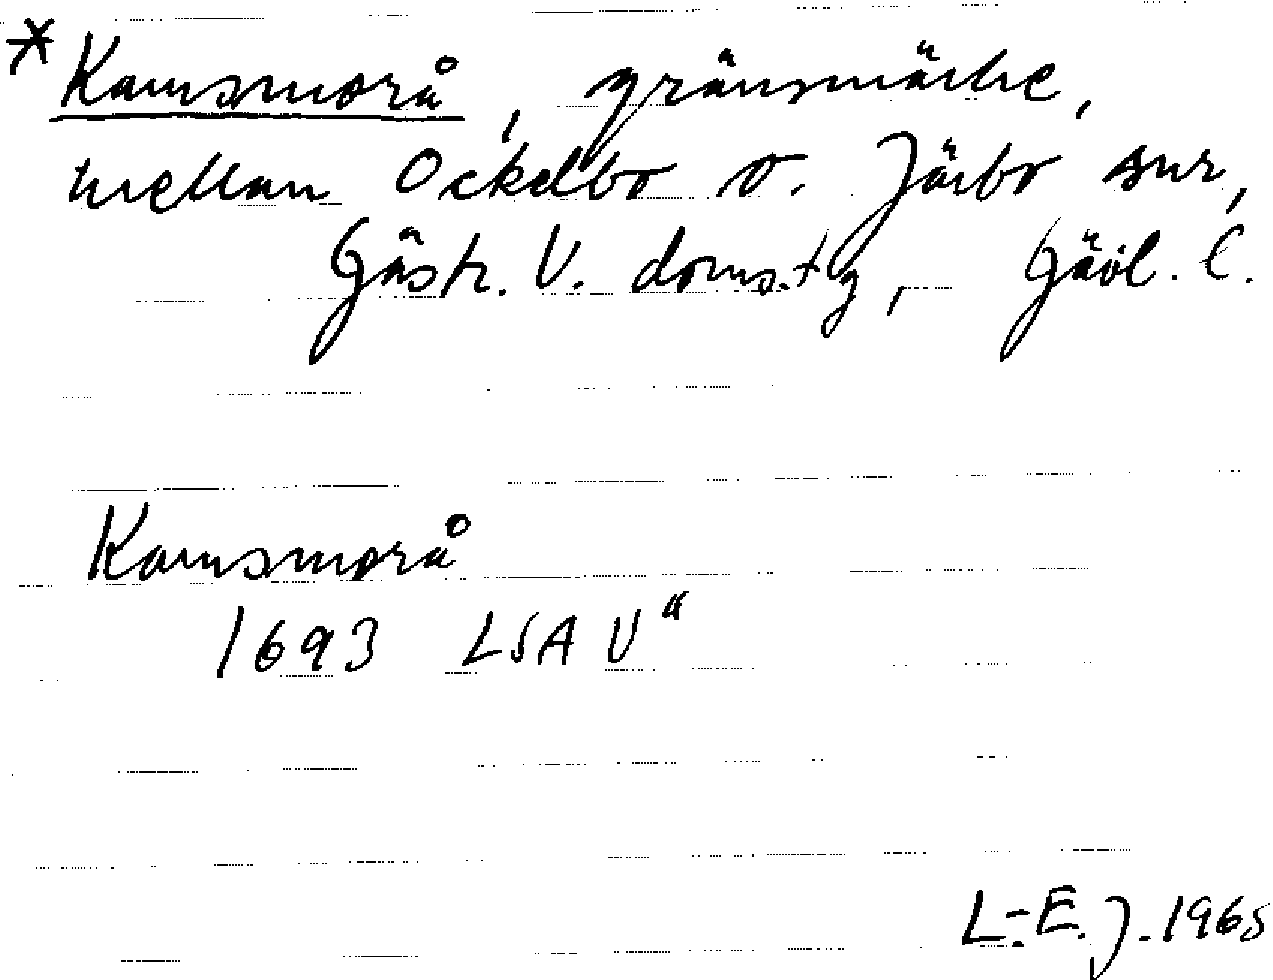 * Kamsmorå, gränsmärke,
mellan Ockelbo o. Järbo snr,
Gästr. V. doms.tg, Gävl. l.
Kamsmorå
1693 LSA U"
L-E. J. 1965